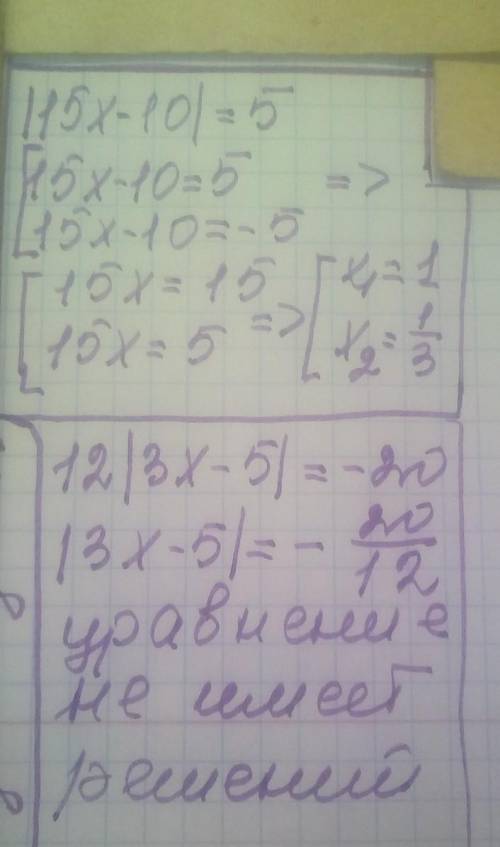 |15x-10|=5
[15x-10=5 =>
[15x-10=-5
[15x=15 => [x₁=1
[15x=5 [x₂=1/3
12|3x-5|=-20
|3x-5|=-20/12
уравнение
не имеет
решений